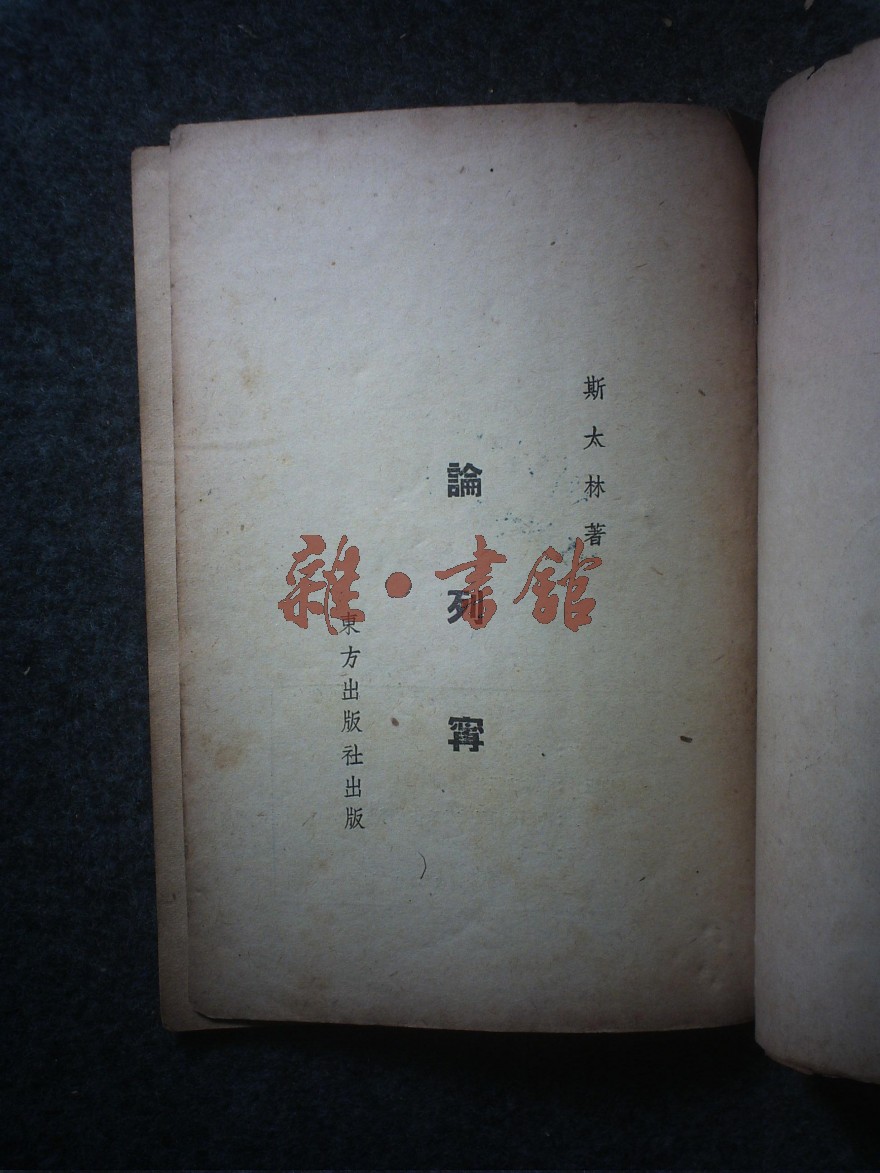 斯太林著
論列甯
東方出版社出版
雜·書館